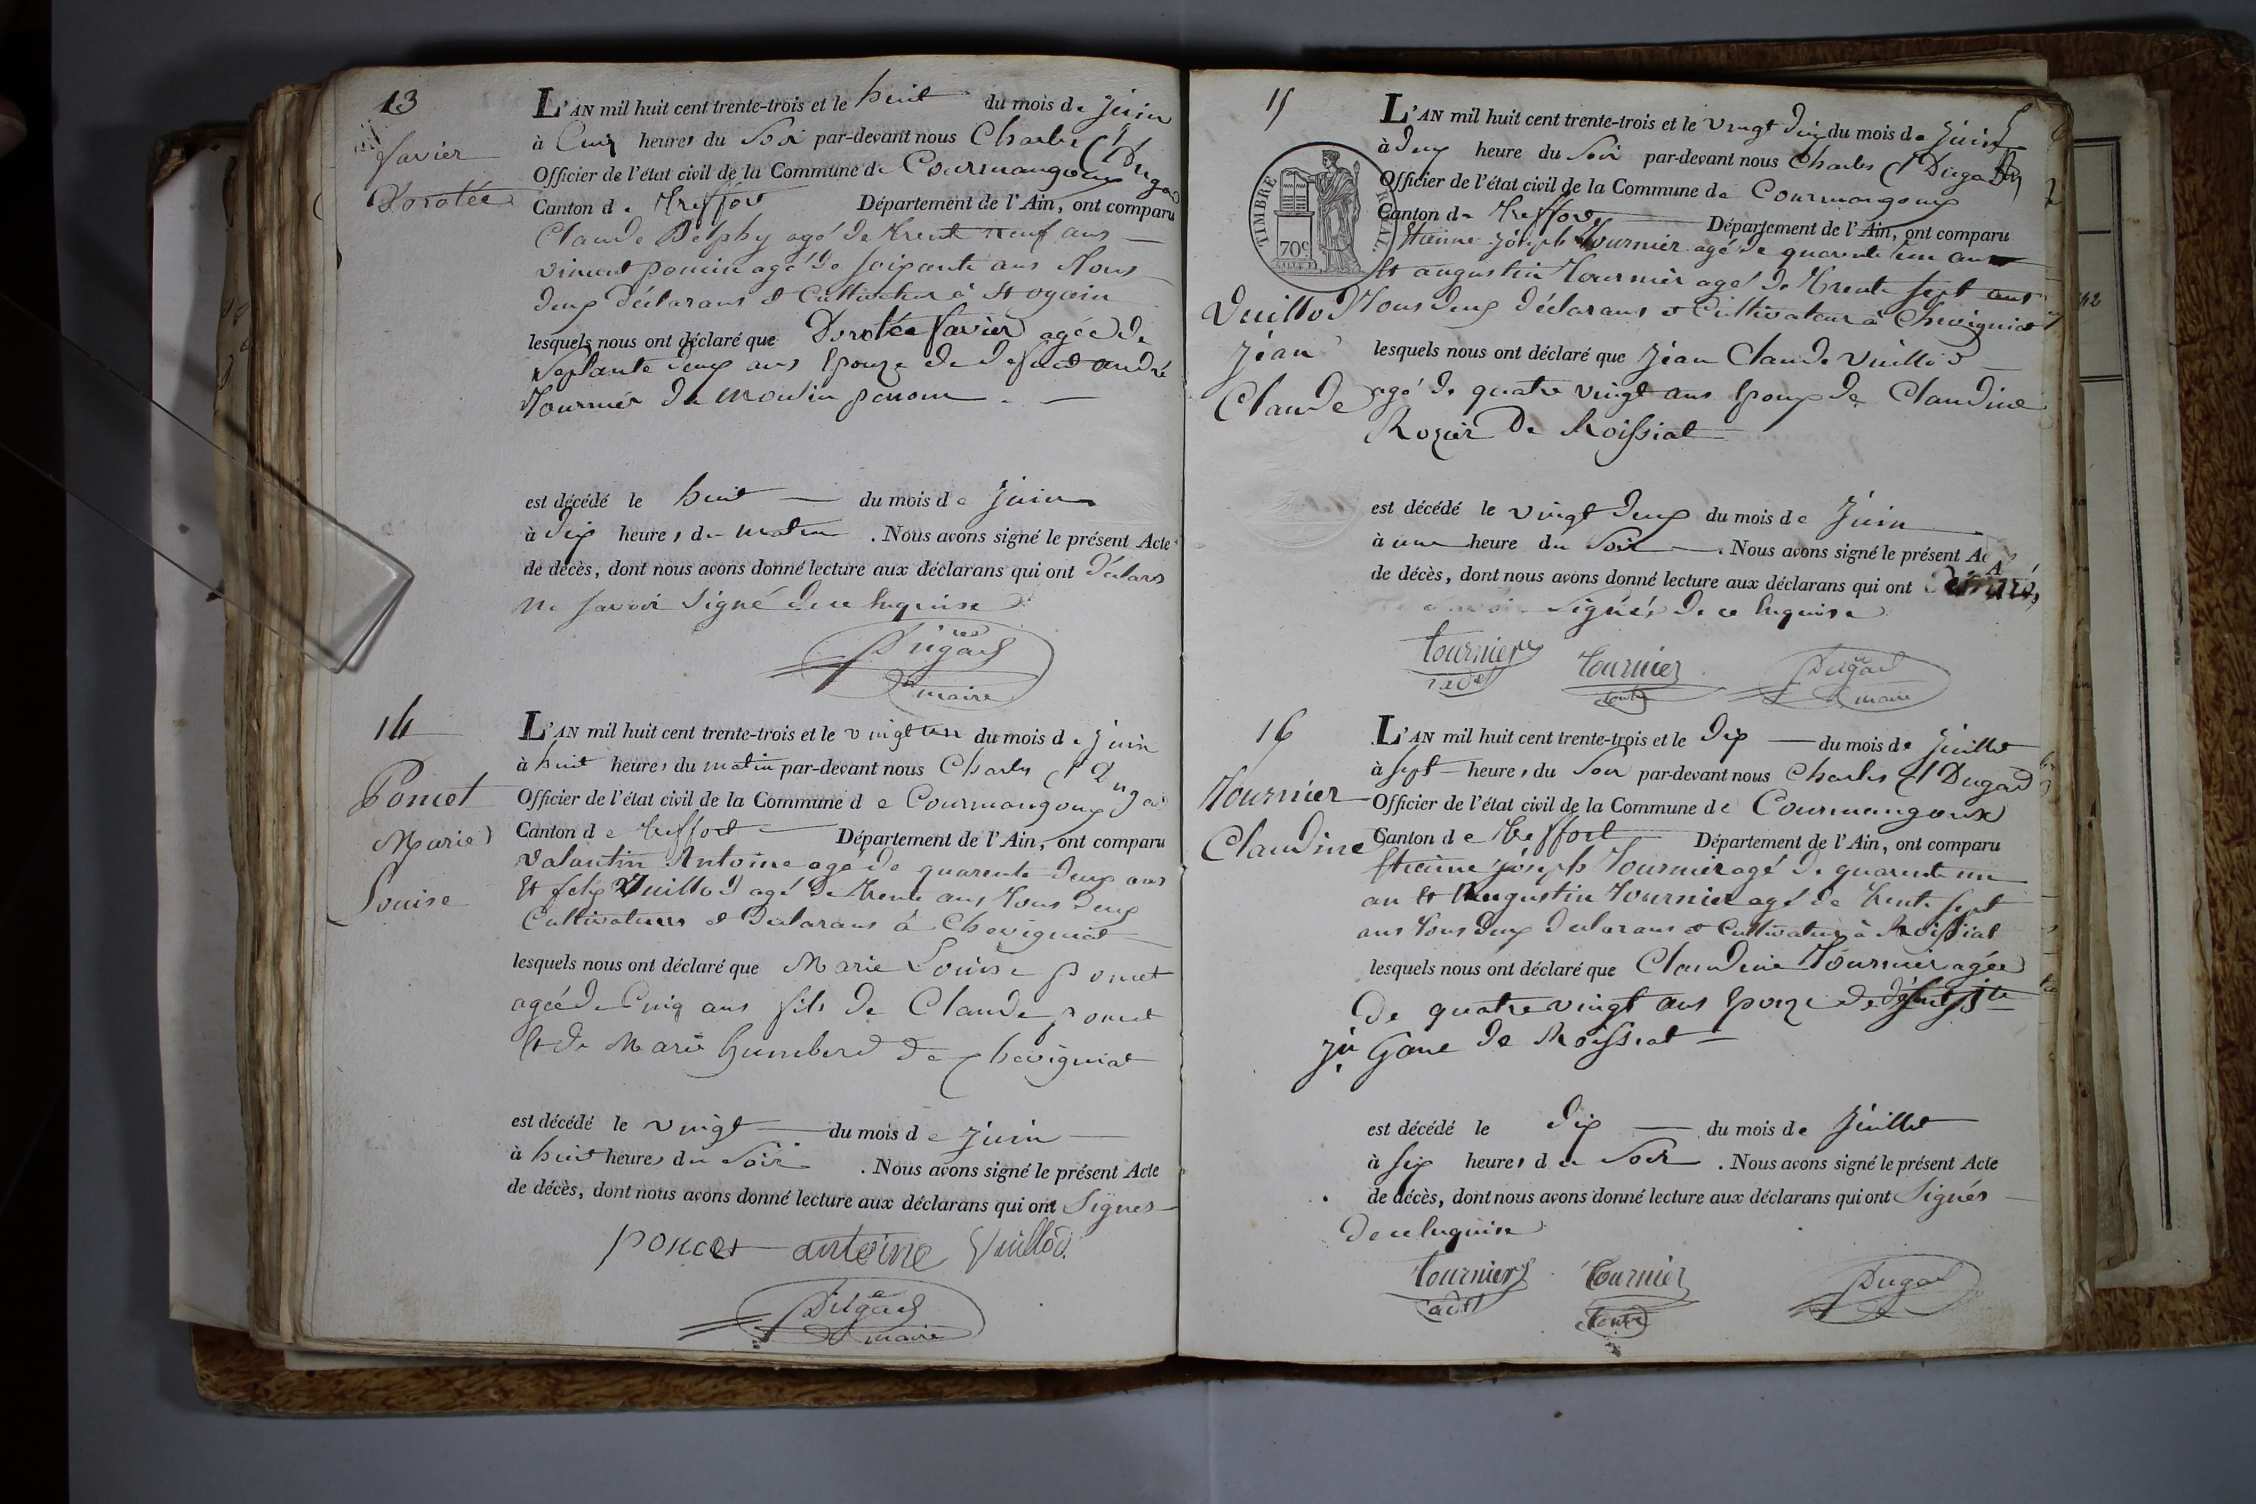 13
Favier
Dorotée
L'AN mil huit cent trente-trois et le huit du mois de juin
à Cinq heures du Soir par-devant nous Charles Cl Dugad
Officier de l'état civil de la Commune de Courmangoux
Canton de Treffort Département de l'Ain, ont comparu
Claude Delphy agé de trente neuf ans
vincent poncin agé de soixante ans tous
deux déclarans et Cultivateur à St ogain
lesquels nous ont déclaré que Dorotée favier agée de
septante deux ans Epouze de defunt andré
Tournier du moulin
est décédé le huit du mois de juin
à dix heures du matin . Nous avons signé le présent Acte
de décès, dont nous avons donné lecture aux déclarans qui ont déclarés
ne savoir signé de ce Enquise
Dugad
maire
14
Poncet
Marie
Louise
L'AN mil huit cent trente-trois et le vingt un du mois de juin
à huit heures du matin par-devant nous Charles Cl Dugad
Officier de l'état civil de la Commune de Courmangoux
Canton de treffort Département de l'Ain, ont comparu
valantin Antoine agé de quarente deux ans
Et felix Vuillod agé de trente ans tous deux
Cultivateurs et declarans à Chevigniat
lesquels nous ont déclaré que Marie Louise poncet
agée de Cinq ans fils de Claude poncet
Et de Marie humberd de chevigniat
est décédé le vingt du mois de juin
à huit heures du Soir . Nous avons signé le présent Acte
de décès, dont nous avons donné lecture aux déclarans qui ont Signés
poncet antoine Vuillod
Dugad
maire
15
TIMBRE ROYAL.
70c
Vuillod
jean
Claude
L'AN mil huit cent trente-trois et le vingt deux du mois de juin
à deux heure du Soir par-devant nous Charles Cl Dugad
Officier de l'état civil de la Commune de Courmangoux
Canton de Treffort Département de l'Ain, ont comparu
Etienne joseph tournier agé de quarente un ans
Et augustin tournier agé de trente sept ans
tous deux déclarans et Cultivateur à Chevigniat
lesquels nous ont déclaré que jean Claude vuillod
agé de quatre vingt ans Epoux de Claudine
Rozier De Roissiat
est décédé le vingt deux du mois de juin
à une heure du Soir . Nous avons signé le présent Acte
de décès, dont nous avons donné lecture aux déclarans qui ont
Signés de ce Enquise
tournier
tournier
Dugad
maire
16
Tournier
Claudine
L'AN mil huit cent trente-trois et le dix du mois de juillet
à sept heures du Soir par-devant nous Charles Cl Dugad
Officier de l'état civil de la Commune de Courmangoux
Canton de Treffort Département de l'Ain, ont comparu
Etienne joseph tournier agé de quarente un
an Et Augustin tournier agé de trente sept
ans tous deux declarans et Cultivateur à Roissiat
lesquels nous ont déclaré que Claudine Tournier agée
de quatre vingt ans Epouze de défunt
de Roissiat
est décédé le dix du mois de juillet
à six heures du Soir . Nous avons signé le présent Acte
de décès, dont nous avons donné lecture aux déclarans qui ont Signés
de ce Enquise
tournier
tournier
Dugad